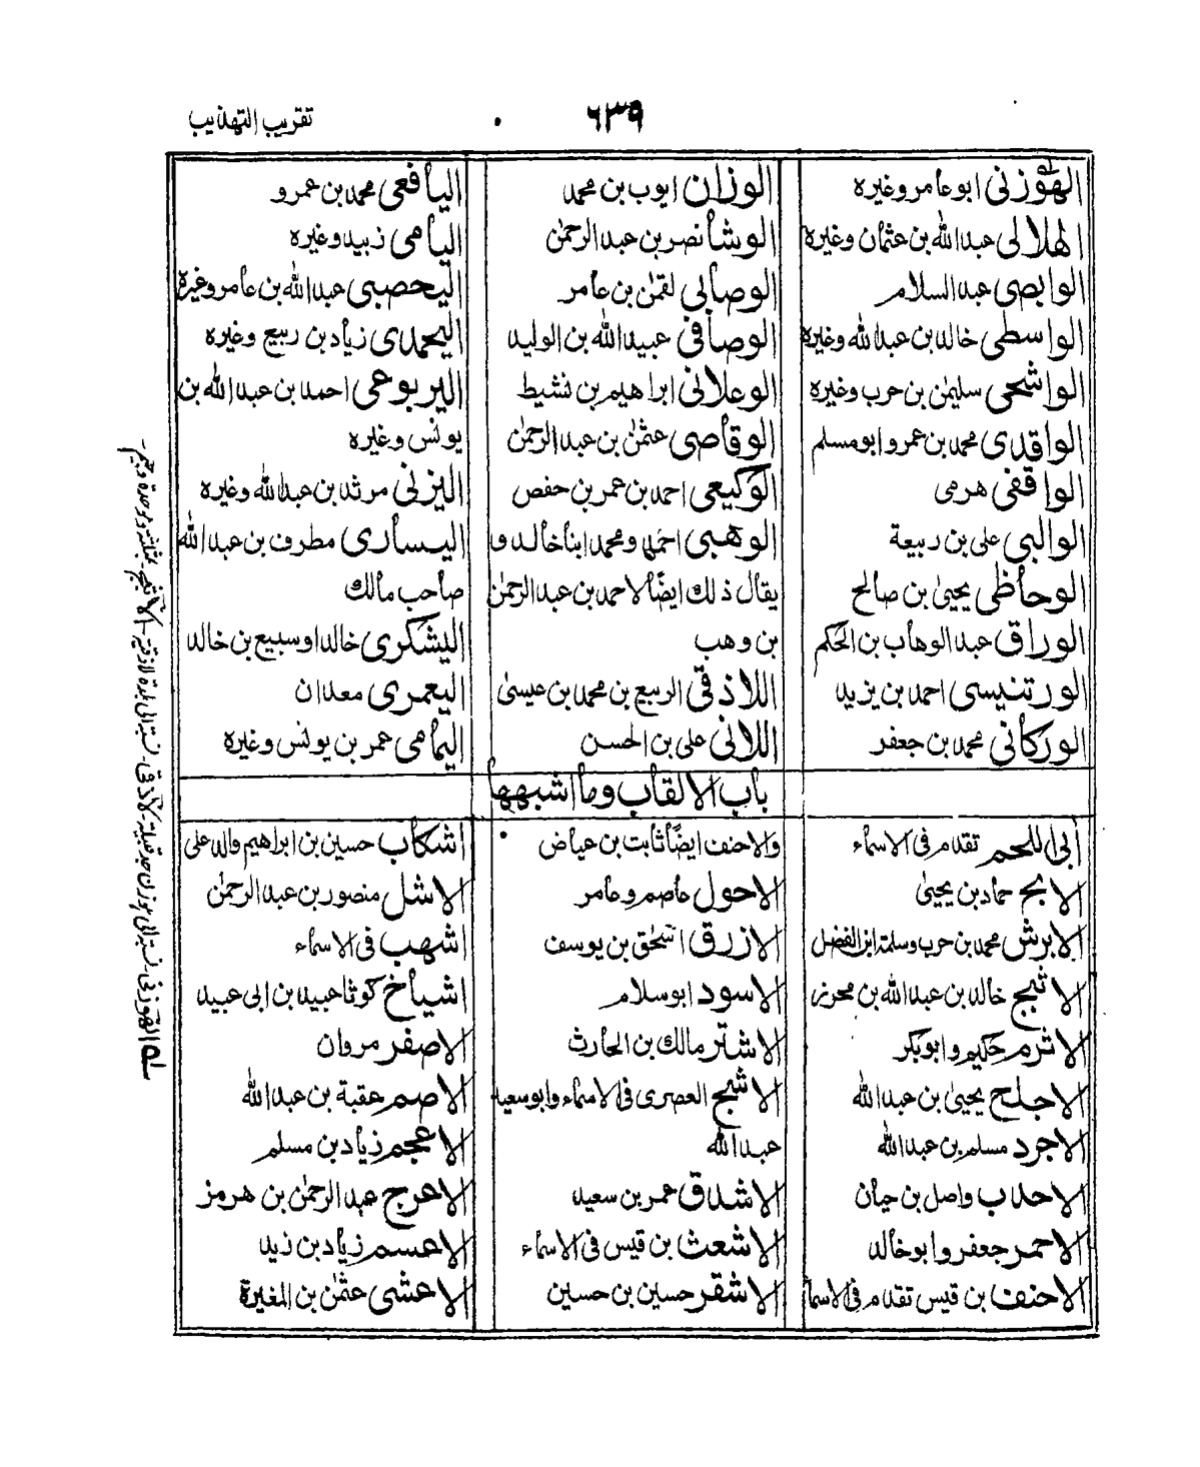 تقريب التهذيب
٦٣٩
الهوزنى ابو عامر وغيره
الهلالى عبد الله بن عثمان وغيره
الوابصى عبد السلام
الواسطى خالد بن عبد الله وغيره
الواشحى سليمٰن بن حرب وغيره
الواقدى محمد بن عمرو ابو مسلم
الواقفى هرمى
الوالبى على بن ربيعة
الوحاظى يحيىٰ بن صالح
الوراق عبد الوهاب بن الحكم
الورتنيسى احمد بن يزيد
الوركانى محمد بن جعفر
الوزان ايوب بن محمد
الوشا نصر بن عبد الرحمٰن
الوصابى لقمٰن بن عامر
الوصافى عبيد الله بن الوليد
الوعلانى ابراهيم بن نشيط
الوقاصى عثمٰن بن عبد الرحمٰن
الوكيعى احمد بن عمر بن حفص
الوهبى احمد ومحمد ابنا خالد و
يقال ذلك ايضًا لاحمد بن عبد الرحمٰن
بن وهب
اللاذقى الربيع بن محمد بن عيسىٰ
اللانى على بن الحسن
اليافعى محمد بن عمرو
اليامى زبيد وغيره
اليحصبى عبد الله بن عامر وغيرة
اليحمدى زياد بن ربيع وغيره
اليربوعى احمد بن عبد الله بن
يونس وغيره
اليزنى مرثد بن عبد الله وغيره
اليسارى مطرف بن عبد الله
صاحب مالك
اليشكرى خالد او سبيع بن خالد
اليعمرى معدان
اليمامى عمر بن يونس وغيره
باب الالقاب وما اشبهها
ابى اللحم تقدم فى الاسماء
الابح حماد بن يحيىٰ
الابرش محمد بن حرب وسلمة ابن الفضل
الاثبج خالد بن عبد الله بن محرز
الاثرم حكيم وابو بكر
الاجلح يحيىٰ بن عبد الله
الاجرد مسلم بن عبد الله
الاحدب واصل بن حيان
الاحمر جعفر وابو خالد
الاحنف بن قيس تقدم فى الاسما
والاحنف ايضًا ثابت بن عياض
الاحول عاصم وعامر
الازرق اسحٰق بن يوسف
الاسود ابو سلام
الاشتر مالك بن الحارث
الاشج العصرى فى الاسماء وابو سعيد
عبد الله
الاشدق عمر بن سعيد
الاشعث بن قيس فى الاسماء
الاشقر حسين بن حسين
اشكاب حسين بن ابراهيم والد على
الاشل منصور بن عبد الرحمٰن
اشهب فى الاسماء
اشياخ كوثا عبيد بن ابى عبيد
الاصفر مروان
الاصم عقبة بن عبد الله
الاعجم زياد بن مسلم
الاعرج عبد الرحمٰن بن هرمز
الاعسم زياد بن زيد
الاعشى عثمٰن بن المغيرة
سله الهوزنى نسبة الى هوزن جد قبيلة - لاذقى نسبة الى بلدة لاذقية -